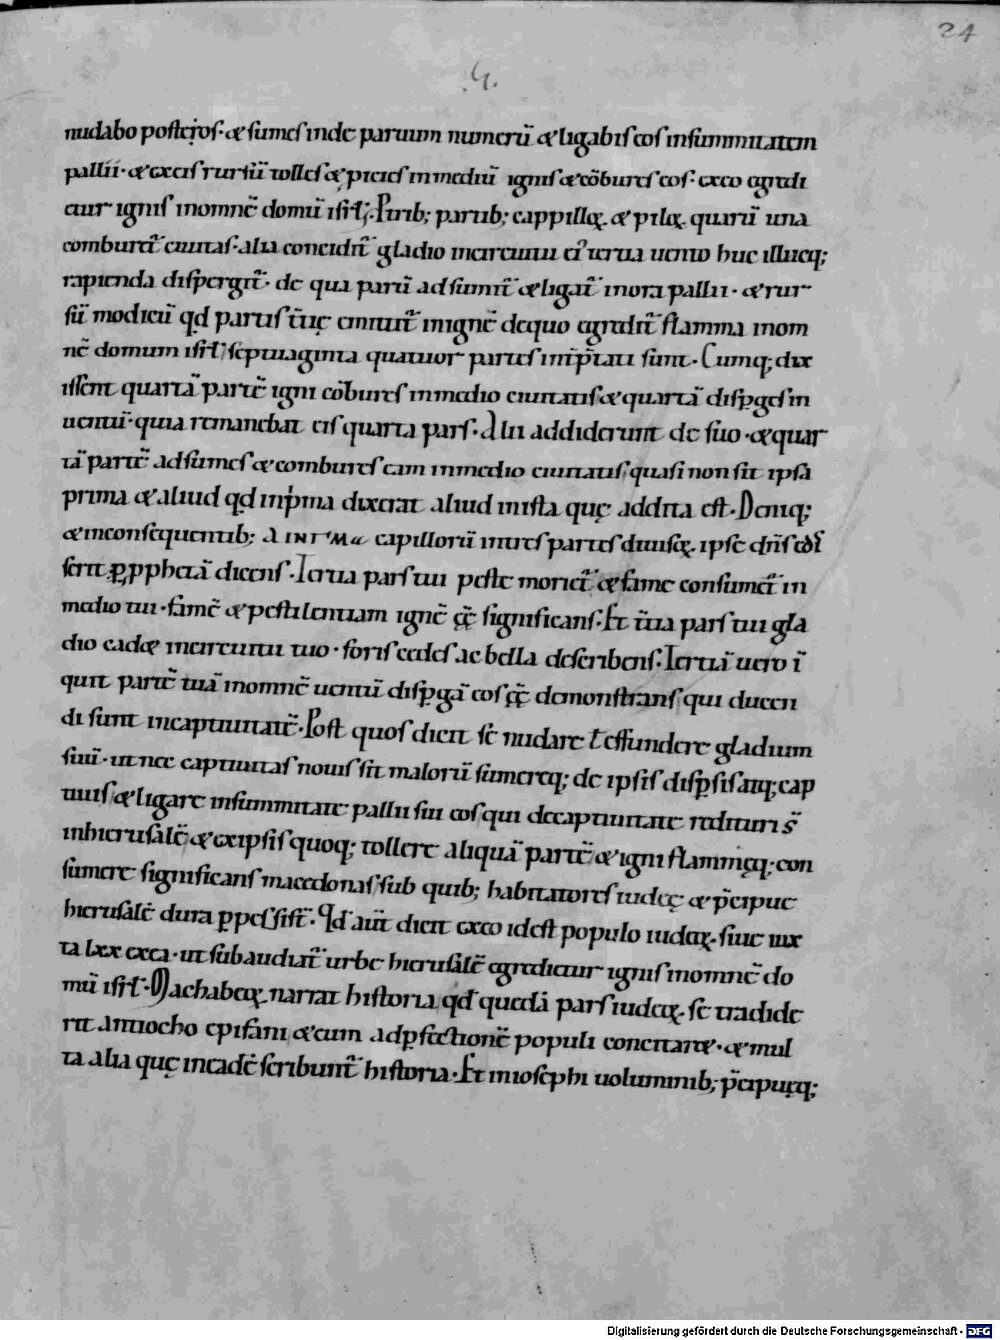 24
4.
nudabo post eos· & sumes inde paruum numerū & ligabis eos in summitatem
pallii· & ex eis rursū tolles & picies in mediū ignis & cōbures eos· ex eo egredi
etur ignis in omnē domū isrl̄; Pilib; partib; cappillꝝ & pilꝝ quarū una
comburet̄ ciuitas· alii concidit̄ gladio in circuitu ei᾽ tertia uento huc illucq;
rapienda dispergit̄· de qua partū adsumit̄ & ligat̄ in ora pallii· & rur
sū modicū qd̄ partis tiae mittit̄ in ignē de quo egredit̄ flamma in om
nē domum isrl̄; septuaginta quatuor partes int̄p̄tati sunt· Cumq; dix
issent quartā partē igni cōbures in medio ciuitatis & quartā disp̄ges in
uentū· quia remanebat eis quarta pars· Alii addiderunt de suo· & quar
tā partē adsumes & combures eam in medio ciuitatis; quasi non sit ipsa
prima & aliud qd̄ in p̄ma dixerat aliud in ista quę addita est· Deniq;
& in consequentib; capillorū in tres partes diuisꝝ· ipse dn̄s
serit ꝑ pphetā dicens· Tertia pars tui peste moriet̄ & fame consumet̄ in
medio tui· famē & pestilentiam ignē ēē significans· Et t̄tia pars tui gla
dio cadet in circuitu tuo· foris cedes ac bella describens· Tertiā uero ī
quit partē tuā in omnē uentū disp̄gā eos ēē demonstrans qui ducen
di sunt in captiuitatē· Post quos dicit se nudare l̄ effundere gladium
suū· ut nec captiuitas nouissit malorū sumereq; de ipsis disp̄sis atq; cap
tiuis & ligare in summitate pallii sui eos qui de captiuitate redituri s̄
in hierusalē & ex ipsis quoq; tollere aliquā partē & igni flammęq; con
sumere significans macedonas sub quib; habitatores iudeę & p̄cipue
hierusalē dura ppessi s̄t̄· Qd̄ aūt dicit ex eo idest populo iudꝝ· siue iux
ta lxx ex ea· ut subaudiat̄ urbe hierusalē egredietur ignis in omnē do
mū isrl̄· Machabeꝝ narrat historia qd̄ quedā pars iudeꝝ se tradide
rit antiocho epifani & cum ad p̄fectionē populi concitaret· & mul
ta alia quę in eadē scribunt̄ historia· Et in iosephi uoluminib; p̄cipueq;
Digitalisierung gefördert durch die Deutsche Forschungsgemeinschaft - DFG